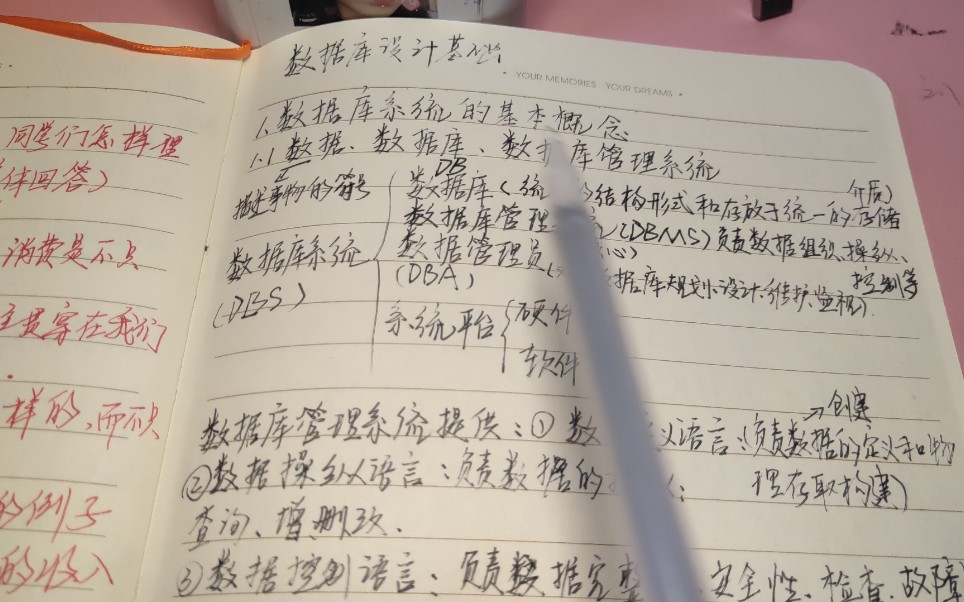 同学们怎样理
回答)
消费是不只
在我们
样的,而不只
的例子
的收入
数据库设计基础
YOUR MEMORIES YOUR DREAMS
1、数据库系统的基本概念
1.1 数据、数据库、数 库管理系统
DB
描述事物的符号
数据库系统
(DBS)
数据库(统 的结构形式和存放于统一的存储
介质)
数据库管理 (DBMS)负责数据组织、操纵、
控制等
数据管理员 心)
(DBA) 据库规划、设计、维护、监视)
系统平台
硬件
软件
数据库管理系统提供:① 数 义语言:(负责数据的定义和物
→创建
理存取构建)
②数据操纵语言:负责数据的
查询、增删改.
③数据控制语言:负责数据完整 安全性、检查、故障